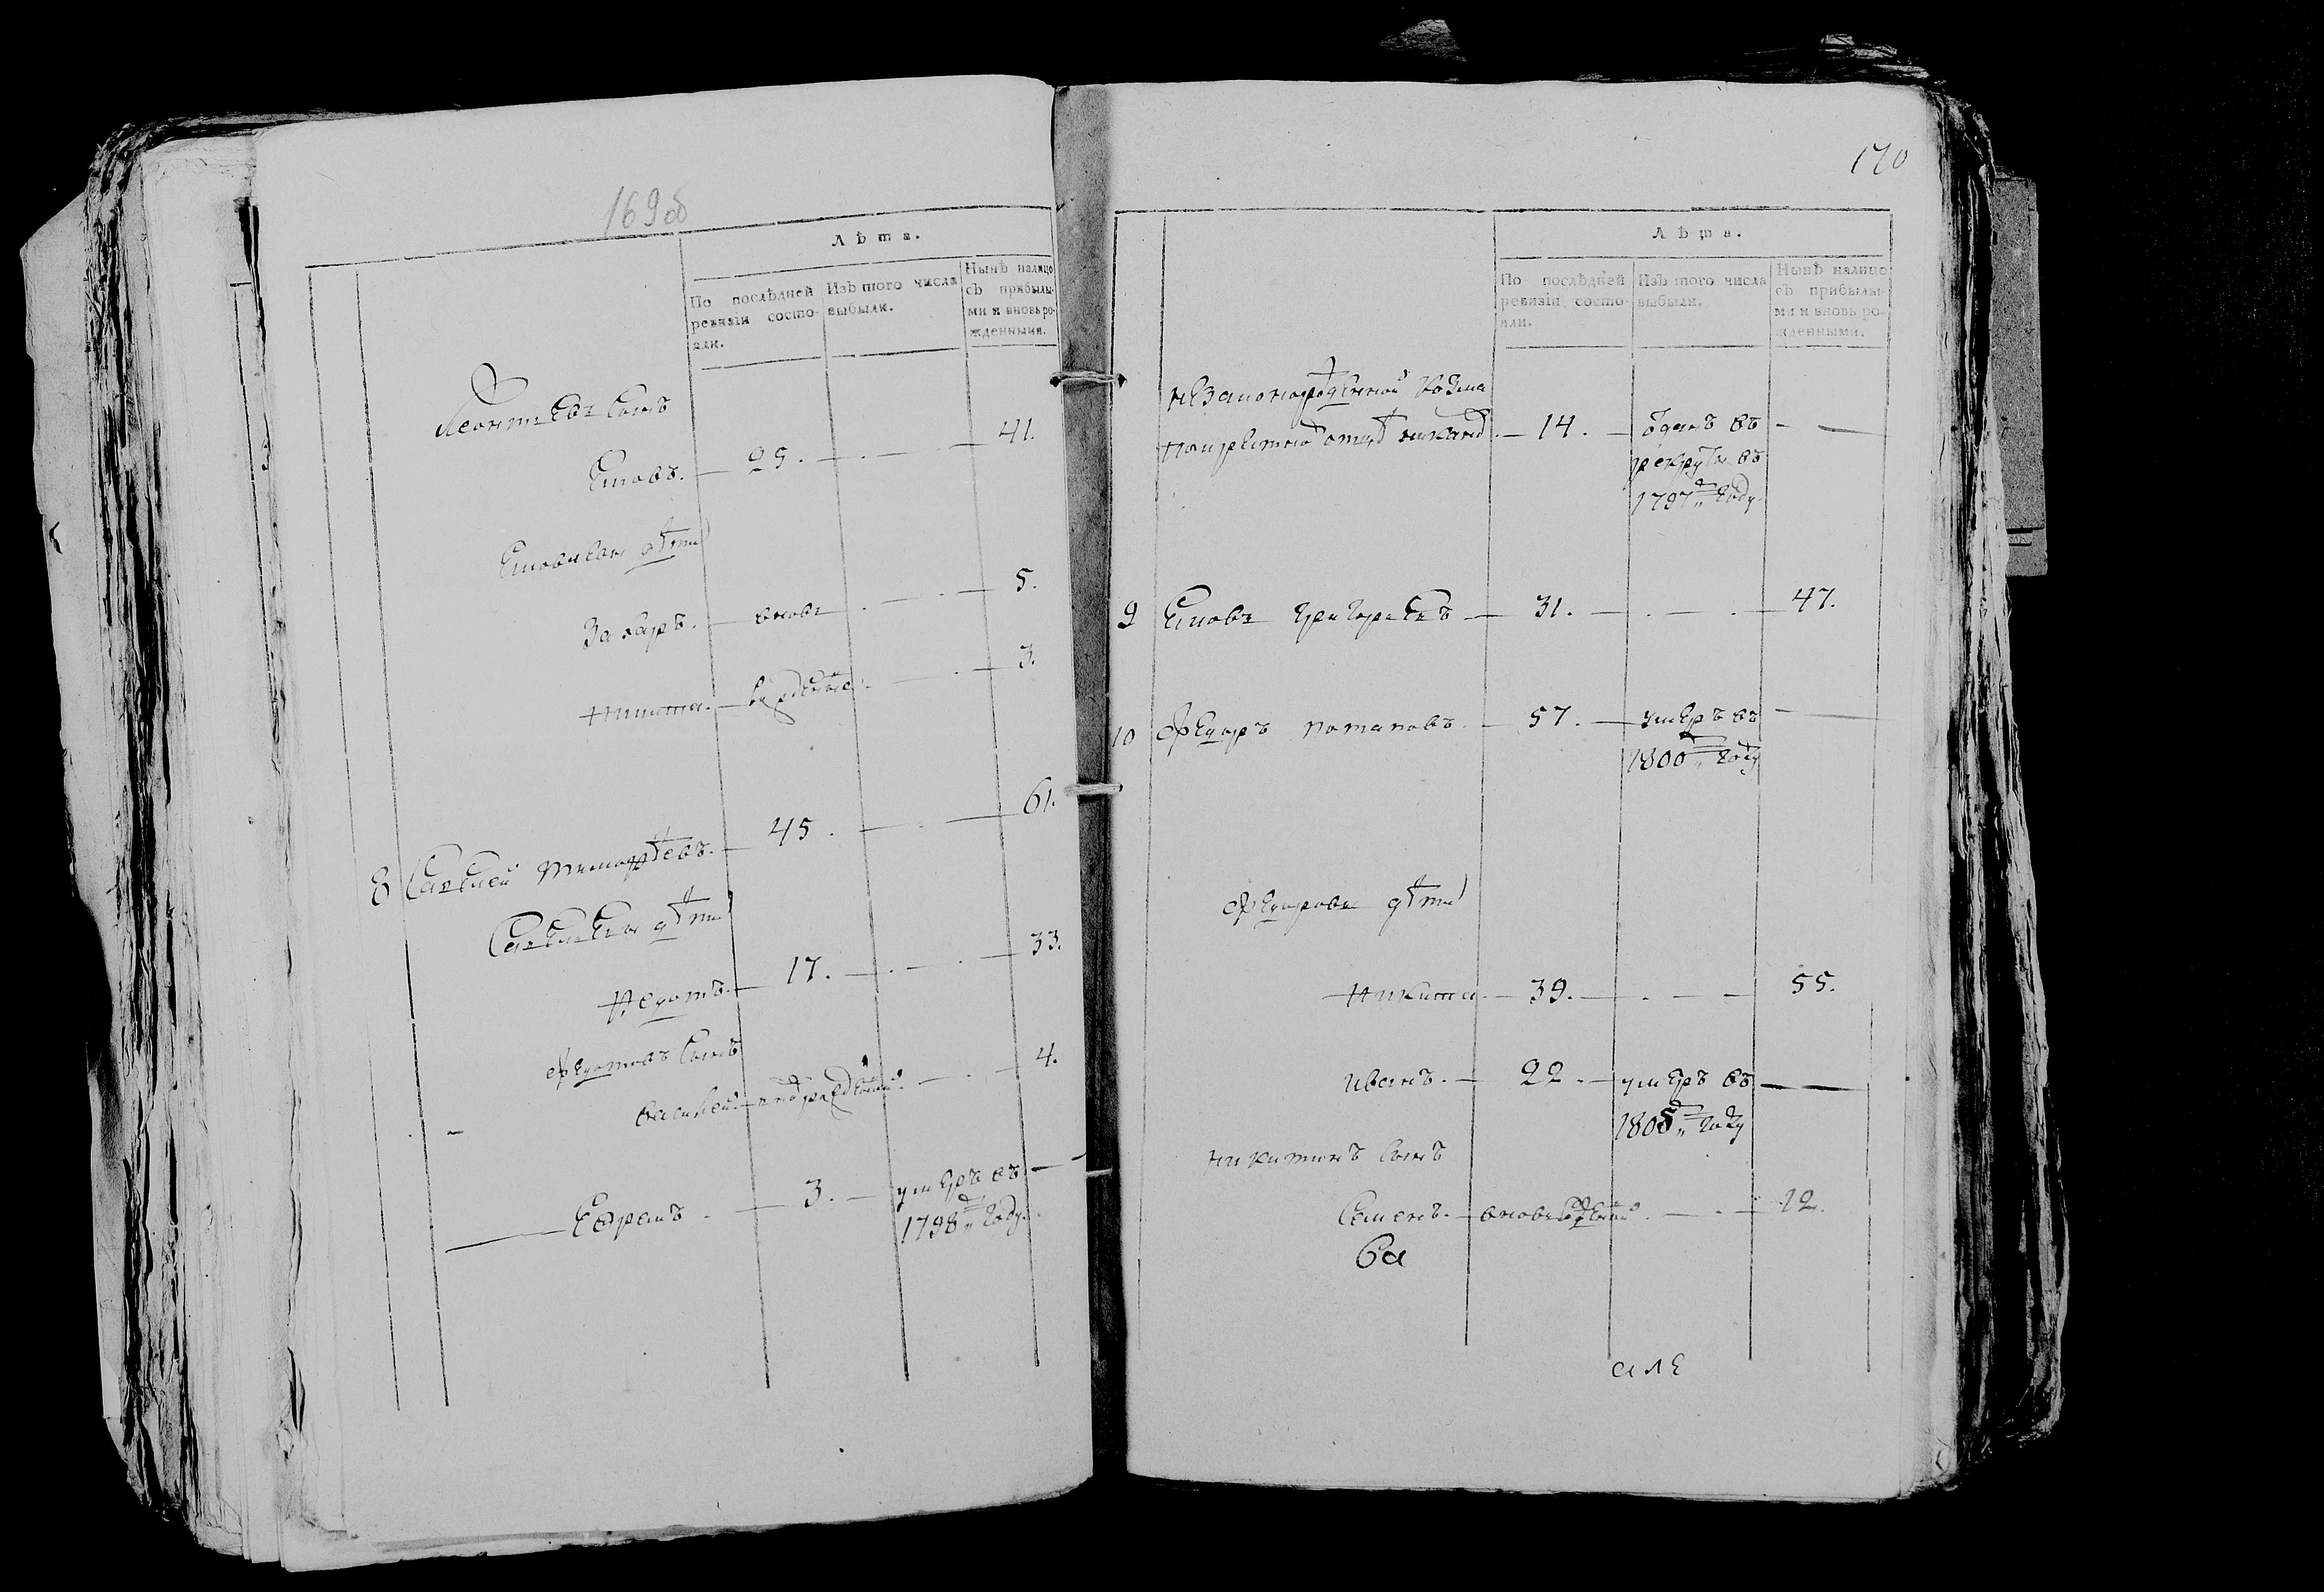 169 об
Лѣта.
По послѣдней ревизіи состояли.
Изъ того числа выбыли.
Нынѣ налицо съ прибылыми и вновь рожденными.
Леонтьевъ сынъ
25. 41.
Еѳимовы дѣти
Захаръ. вновь 5.
Никита. 3.
8 Савелей Тимофѣевъ. 45. 61.
Савельевы дѣти
Ѳедотъ. 17. 33.
Федотовъ сынъ
Василей 4.
Ефремъ. 3. умеръ въ
1798м году.
170
Лѣта.
По послѣдней ревизіи состояли.
Изъ того числа выбыли.
Нынѣ налицо съ прибылыми и вновь рожденными.
незаконорожденной Козма
14. отданъ въ
рекруты въ
1797м году.
9 Григорьевъ 31. 47.
10 Федоръ Потаповъ 57. умеръ въ
1800м году
Федоровы дѣти
Никита 39. 55.
Иванъ. 22. умеръ въ
1805м году
Никитинъ сынъ
Семенъ. вновь 12.
Ва
але